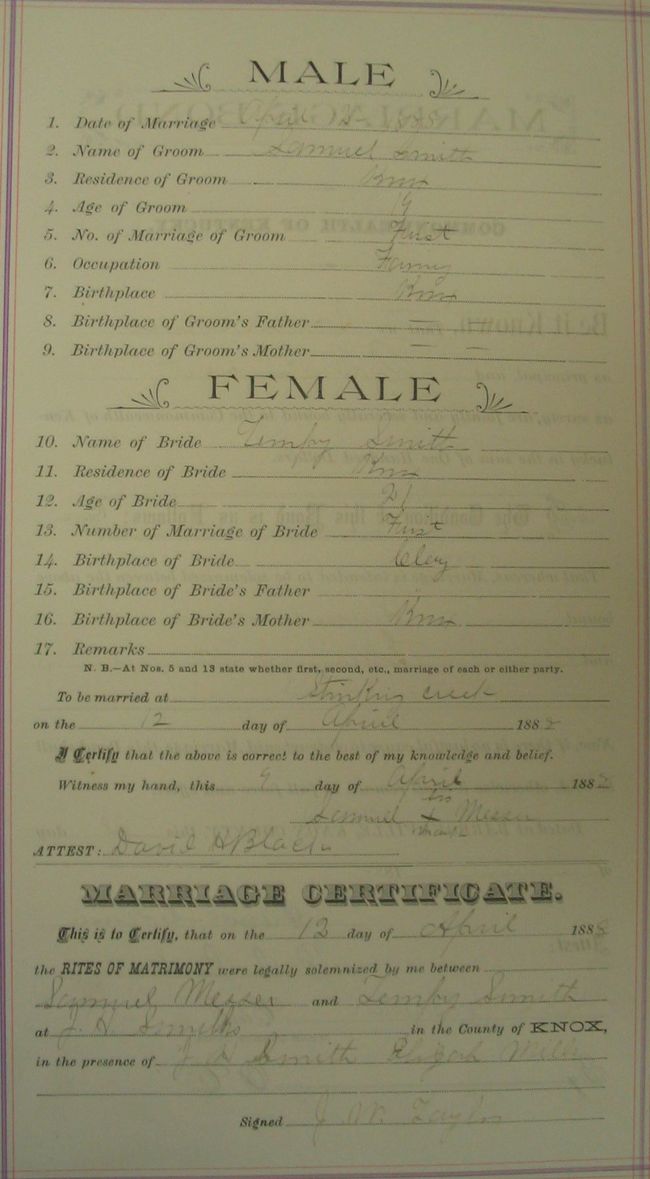 MALE
1. Date of Marriage April 12 1888
2. Name of Groom Samuel Smith
3. Residence of Groom Knox
4. Age of Groom 19
5. No. of Marriage of Groom First
6. Occupation Farming
7. Birthplace Knox
8. Birthplace of Groom's Father —
9. Birthplace of Groom's Mother — —
FEMALE
10. Name of Bride Temby Smith
11. Residence of Bride Knox
12. Age of Bride 21
13. Number of Marriage of Bride First
14. Birthplace of Bride Clay
15. Birthplace of Bride's Father
16. Birthplace of Bride's Mother Knox
17. Remarks
N. B.—At Nos. 5 and 13 state whether first, second, etc., marriage of each or either party.
To be married at Stinking Creek
on the 12 day of April 1888
I Certify that the above is correct to the best of my knowledge and belief.
Witness my hand, this 9 day of April 1888
his
Samuel X Messer
mark
ATTEST: David H Black
MARRIAGE CERTIFICATE.
This is to Certify, that on the 12 day of April 1888
the RITES OF MATRIMONY were legally solemnized by me between
Samuel Messer and Temby Smith
at J. H. Smiths in the County of KNOX,
in the presence of J H Smith Elijah Mills
Signed J. W. Taylor